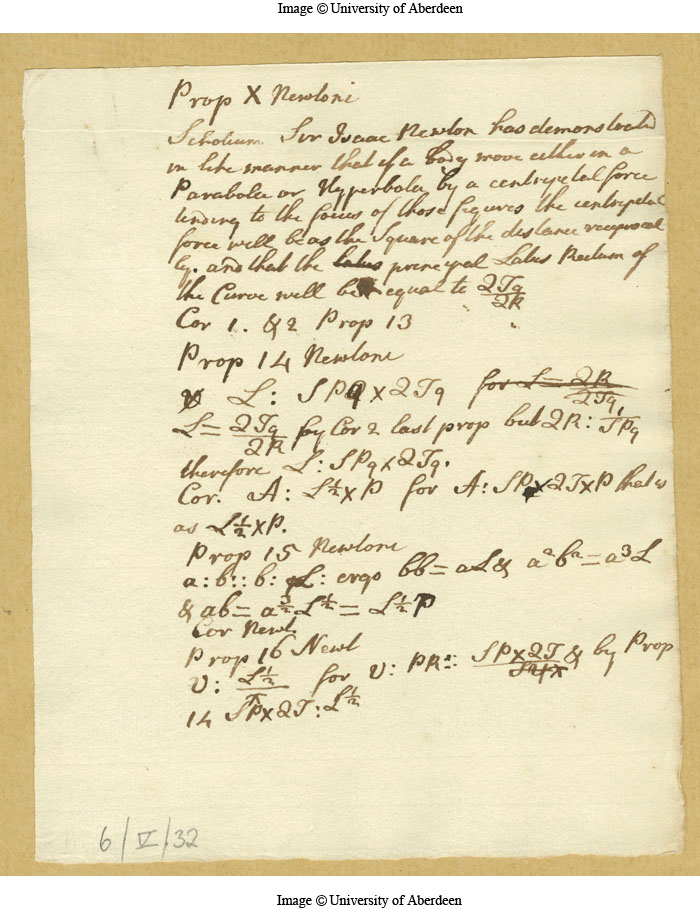 Image © University of Aberdeen
Prop X Newtoni
Scholium Sir Isaac Newton has demonstrated
in like manner that if a body move either in a
Parabola or Hyperbola by a centripetal force
tending to the focus of those figures the centripetal
force will be as the Square of the distance reciprocal
ly. and that the latus principal Latus Rectum of
the Curve will be equal to 2Tq/2R
Cor 1. & 2 Prop 13
Prop 14 Newtoni
L : SPq × QTq for L = QR/QTq
L = QTq/QR by Cor 2 last prop but QR : 1/SPq
therefore L : SPq × QTq.
Cor. A : L½ × P for A : SP × QT × P that is
as L½ × P.
Prop 15 Newtoni
a : b :: b : L : ergo bb = aL & a²b² = a³L
& ab = a3/2 L½ = L½ P
Cor Newt
Prop 16 Newt
v : L½/P for v : PR :: SP × QT & by Prop
14 SP × QT : L½
6/V/32
Image © University of Aberdeen